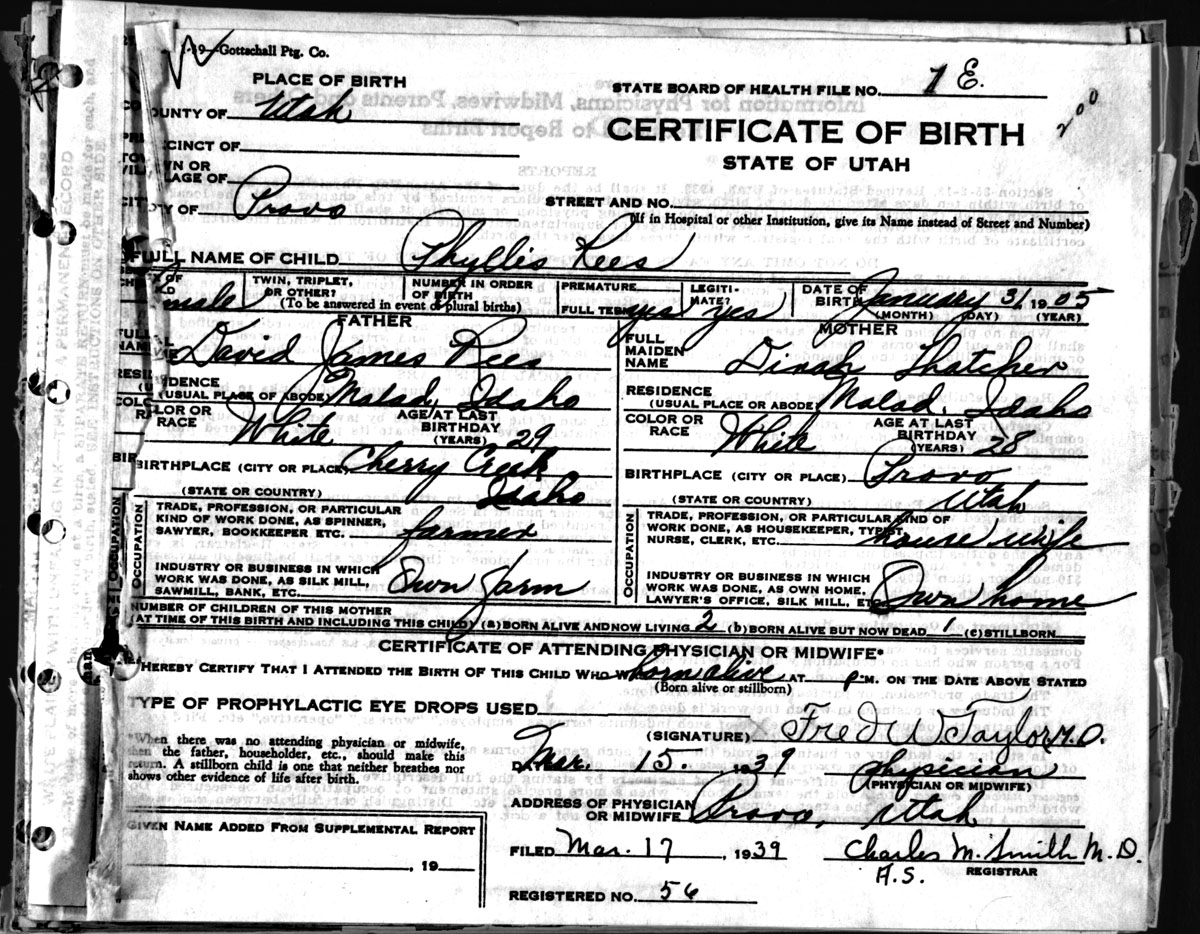 -19-Gottschall Ptg. Co.
PLACE OF BIRTH
STATE BOARD OF HEALTH FILE NO. 1 E.
200
COUNTY OF Utah
CERTIFICATE OF BIRTH
CINCT OF
STATE OF UTAH
WN OR
LAGE OF
CITY OF Provo
STREET AND NO.
(If in Hospital or other Institution, give its Name instead of Street and Number)
FULL NAME OF CHILD Phyllis Rees
male
TWIN, TRIPLET, OR OTHER?
NUMBER IN ORDER OF BIRTH
(To be answered in event of plural births)
PREMATURE
FULL TERM yes
LEGITIMATE? yes
DATE OF BIRTH January 31 1905
(MONTH) (DAY) (YEAR)
FATHER
MOTHER
David James Rees
FULL MAIDEN NAME Dinah Thatcher
RESIDENCE (USUAL PLACE OF ABODE) Malad, Idaho
RESIDENCE (USUAL PLACE OF ABODE) Malad, Idaho
COLOR OR RACE White AGE AT LAST BIRTHDAY (YEARS) 29
COLOR OR RACE White AGE AT LAST BIRTHDAY (YEARS) 28
BIRTHPLACE (CITY OR PLACE) Cherry Creek
(STATE OR COUNTRY) Idaho
BIRTHPLACE (CITY OR PLACE) Provo
(STATE OR COUNTRY) Utah
OCCUPATION
TRADE, PROFESSION, OR PARTICULAR
KIND OF WORK DONE, AS SPINNER,
SAWYER, BOOKKEEPER ETC. farmer
INDUSTRY OR BUSINESS IN WHICH
WORK WAS DONE, AS SILK MILL,
SAWMILL, BANK, ETC. Own farm
OCCUPATION
TRADE, PROFESSION, OR PARTICULAR KIND OF
WORK DONE, AS HOUSEKEEPER, TYPIST,
NURSE, CLERK, ETC. house wife
INDUSTRY OR BUSINESS IN WHICH
WORK WAS DONE, AS OWN HOME,
LAWYER'S OFFICE, SILK MILL, ETC. Own home
NUMBER OF CHILDREN OF THIS MOTHER
(AT TIME OF THIS BIRTH AND INCLUDING THIS CHILD) (a) BORN ALIVE AND NOW LIVING 2 (b) BORN ALIVE BUT NOW DEAD 1 (c) STILLBORN
CERTIFICATE OF ATTENDING PHYSICIAN OR MIDWIFE*
I HEREBY CERTIFY THAT I ATTENDED THE BIRTH OF THIS CHILD WHO WAS born alive AT P M. ON THE DATE ABOVE STATED
(Born alive or stillborn)
TYPE OF PROPHYLACTIC EYE DROPS USED
*When there was no attending physician or midwife,
then the father, householder, etc., should make this
return. A stillborn child is one that neither breathes nor
shows other evidence of life after birth.
(SIGNATURE) Fred W Taylor M.D.
Mar. 15. 1939 physician
(PHYSICIAN OR MIDWIFE)
ADDRESS OF PHYSICIAN
OR MIDWIFE Provo, Utah
GIVEN NAME ADDED FROM SUPPLEMENTAL REPORT
, 19
FILED Mar. 17, 1939 Charles M. Smith M.D.
H.S. REGISTRAR
REGISTERED NO. 56